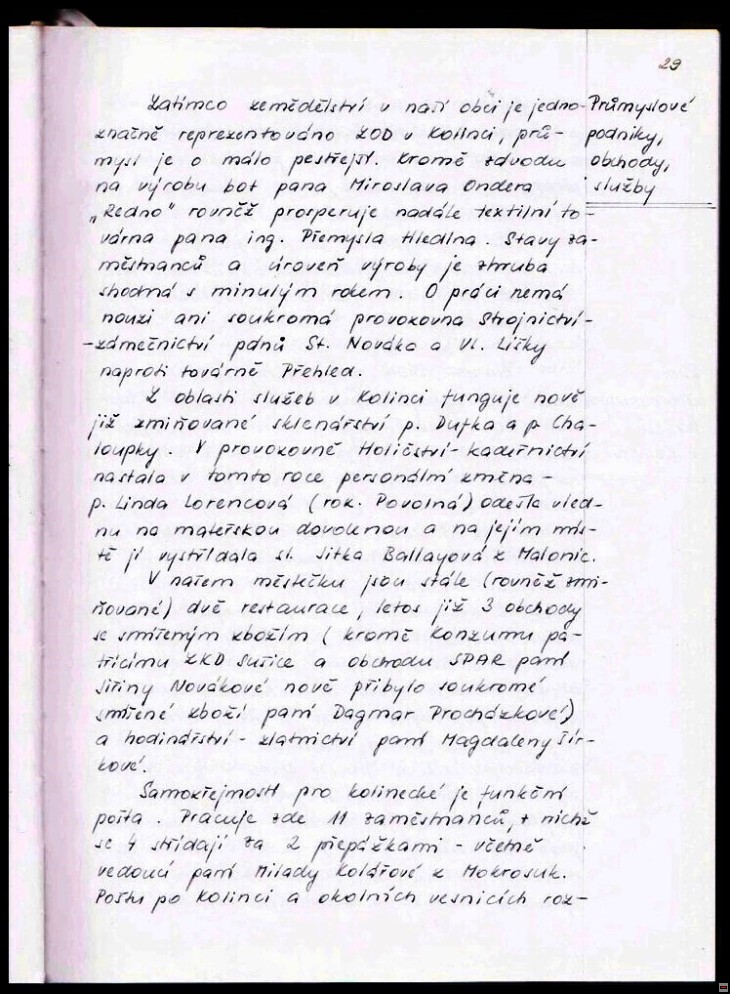 29
Zatímco zemědělství v naší obci je jedno-
značně reprezentováno ZOD v Kolinci, prů-
mysl je o málo pestřejší. Kromě závodu
na výrobu bot pana Miroslava Ondera
„Redno" rovněž prosperuje nadále textilní to-
várna pana ing. Přemysla Hledína. Stavy za-
městnanců a úroveň výroby je zhruba
shodná s minulým rokem. O práci nemá
nouzi ani soukromá provozovna Strojnictví-
-zámečnictví pánů St. Nováka a Vl. Lišky
naproti továrně Přehled.
Z oblasti služeb v Kolinci funguje nově
již zmiňované sklenářství p. Dufka a p. Cha-
loupky. V provozovně Holičství-kadeřnictví
nastala v tomto roce personální změna -
p. Linda Lorencová (roz. Povolná) odešla vled-
nu na mateřskou dovolenou a na jejím mís-
tě ji vystřídala sl. Jitka Ballayová z Malonic.
V našem městečku jsou stále (rovněž zmi-
ňované) dvě restaurace, letos již 3 obchody
se smíšeným zbožím (kromě Konzumu pa-
třícímu ZKD Sušice a obchodu SPAR paní
Jiřiny Novákové nově přibylo soukromé
smíšené zboží paní Dagmar Procházkové)
a hodinářství - zlatnictví paní Magdaleny Šír-
kové.
Samozřejmostí pro kolinecké je funkční
pošta. Pracuje zde 11 zaměstnanců, z nichž
se 4 střídají za 2 přepážkami - včetně
vedoucí paní Milady Kolářové z Mokrosuk.
Poštu po Kolinci a okolních vesnicích roz-
Průmyslové
podniky,
obchody,
služby